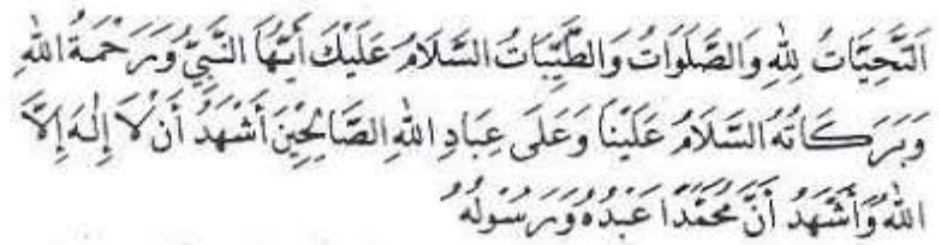 اَلتَّحِيَّاتُ لِلّٰهِ وَالصَّلَوَاتُ وَالطَّيِّبَاتُ السَّلَامُ عَلَيْكَ أَيُّهَا النَّبِيُّ وَرَحْمَةُ اللّٰهِ
وَبَرَكَاتُهُ السَّلَامُ عَلَيْنَا وَعَلَى عِبَادِ اللّٰهِ الصَّالِحِيْنَ أَشْهَدُ أَنْ لَا إِلٰهَ إِلَّا
اللّٰهُ وَأَشْهَدُ أَنَّ مُحَمَّدًا عَبْدُهُ وَرَسُوْلُهُ